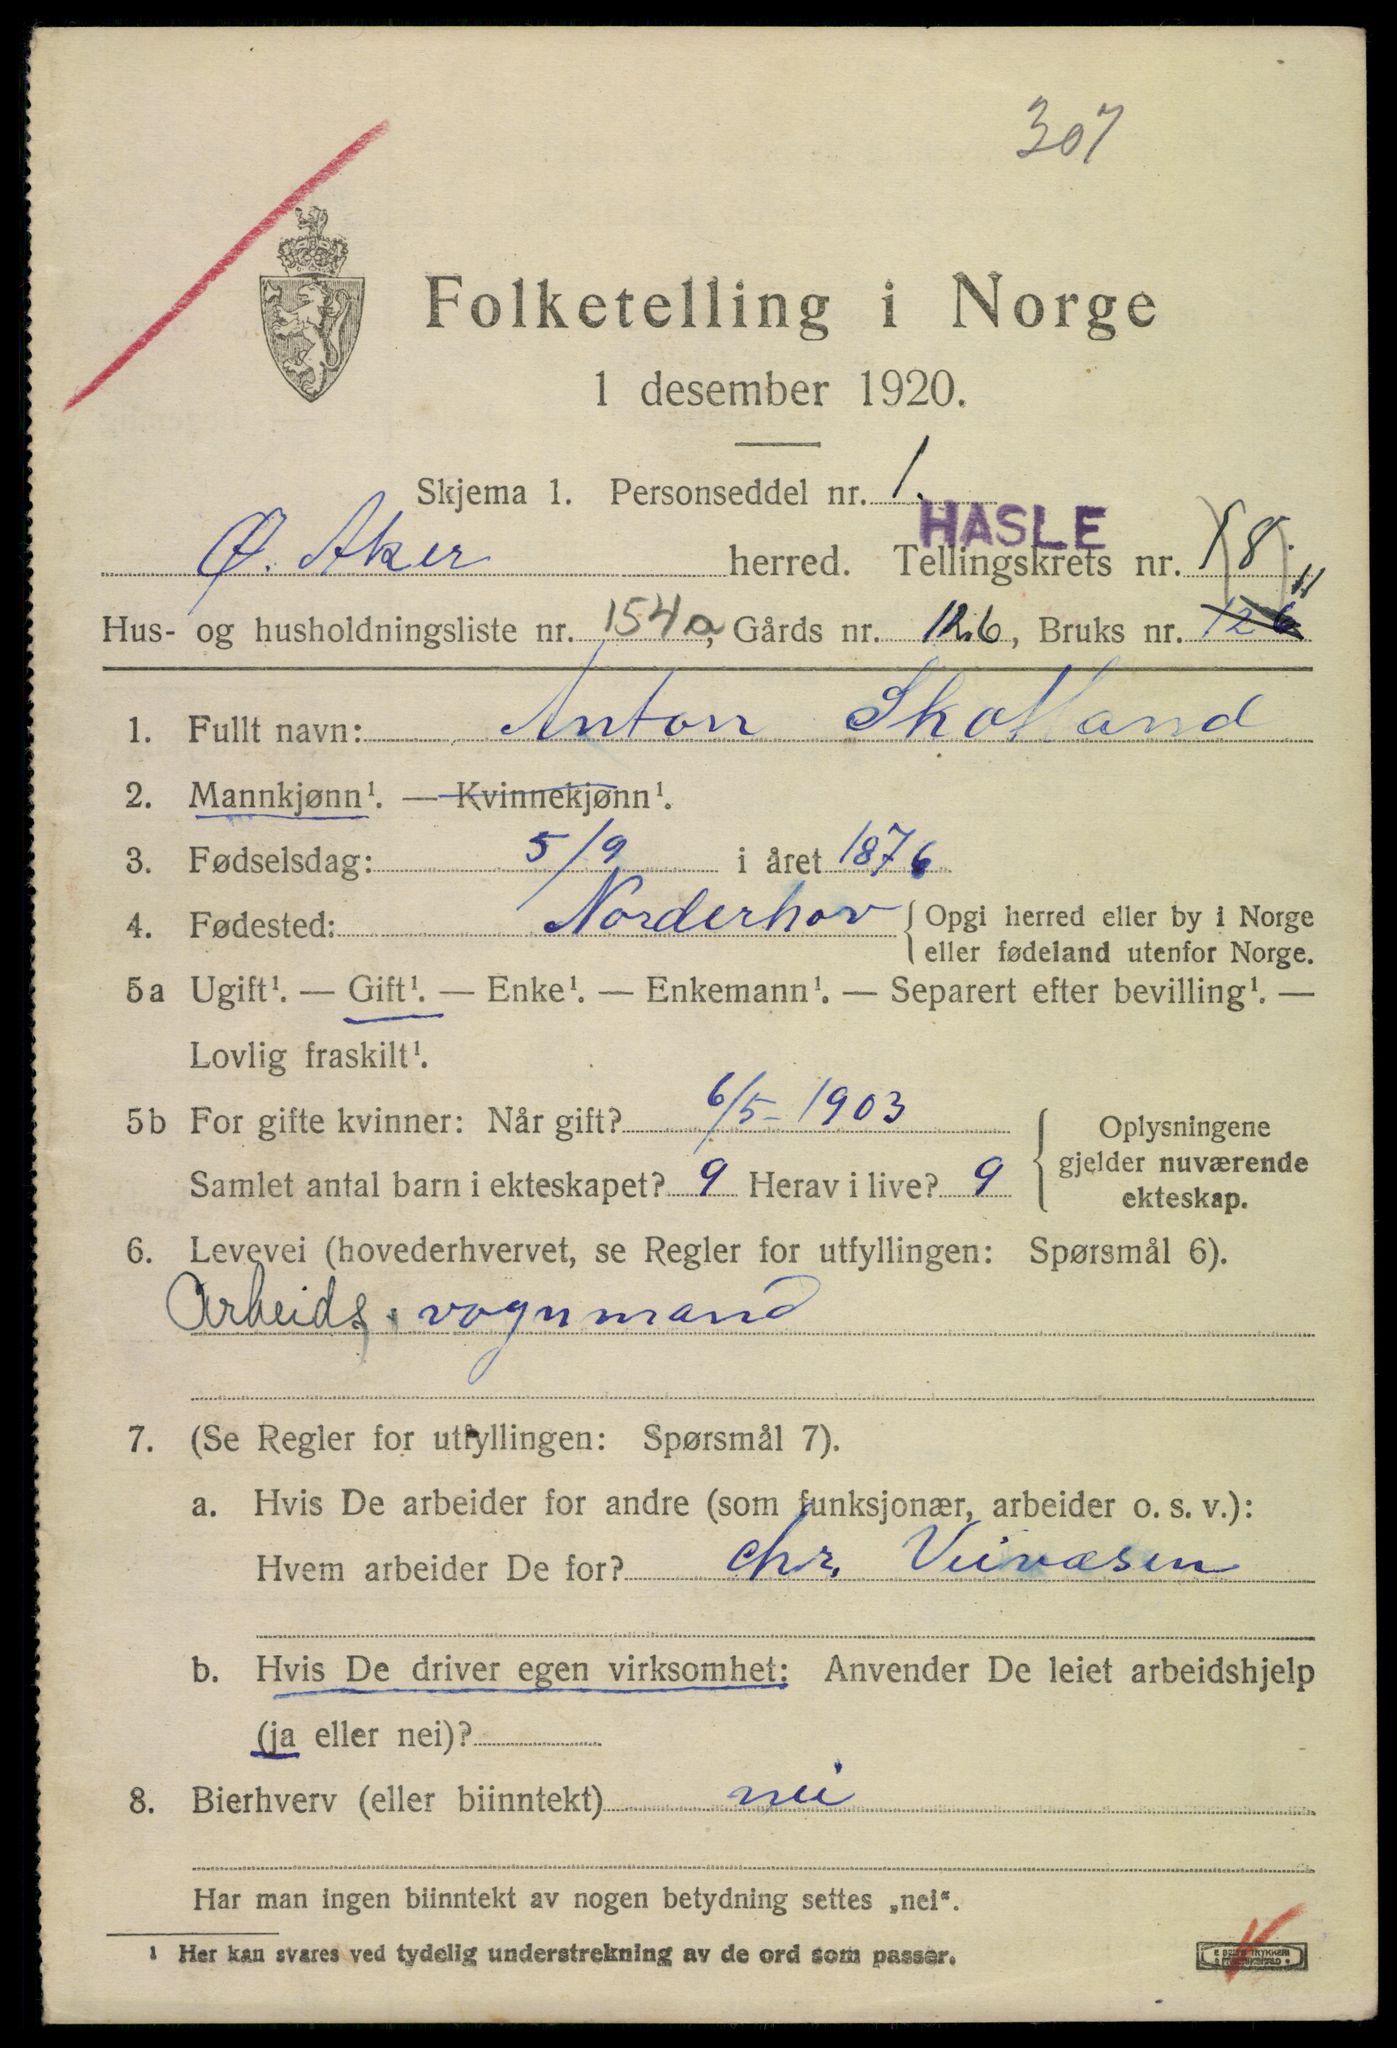 307
Folketelling i Norge
1 desember 1920.
Skjema 1. Personseddel nr. 1.
HASLE
Ø. Aker herred. Tellingskrets nr. 18.
11
Hus- og husholdningsliste nr. 154a, Gårds nr. 126, Bruks nr. 126
1. Fullt navn: Anton Skotland
2. Mannkjønn¹. — Kvinnekjønn¹.
3. Fødselsdag: 5/9 i året 1876
4. Fødested: Norderhov { Opgi herred eller by i Norge
eller fødeland utenfor Norge.
5a Ugift¹. — Gift¹. — Enke¹. — Enkemann¹. — Separert efter bevilling¹. —
Lovlig fraskilt¹.
5b For gifte kvinner: Når gift? 6/5-1903
Samlet antal barn i ekteskapet? 9 Herav i live? 9
Oplysningene
gjelder nuværende
ekteskap.
6. Levevei (hovederhvervet, se Regler for utfyllingen: Spørsmål 6).
Arbeids vognmand
7. (Se Regler for utfyllingen: Spørsmål 7).
a. Hvis De arbeider for andre (som funksjonær, arbeider o. s. v.):
Hvem arbeider De for? Chr. Veivæsen
b. Hvis De driver egen virksomhet: Anvender De leiet arbeidshjelp
(ja eller nei)?
8. Bierhverv (eller biinntekt) nei
Har man ingen biinntekt av nogen betydning settes „nei“.
¹ Her kan svares ved tydelig understrekning av de ord som passer.